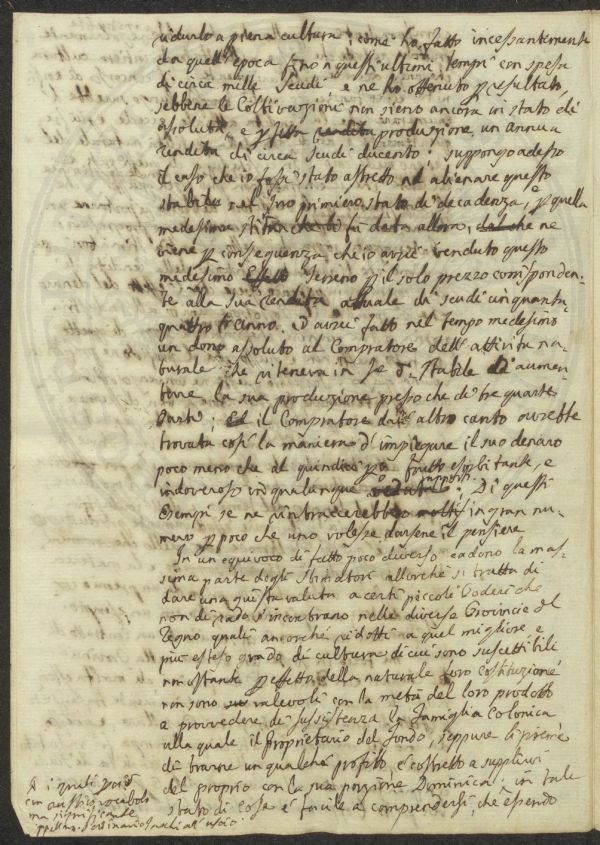 ridurlo a piena cultura, come ho fatto incessantemente
da quell'epoca fino a questi ultimi tempi con spesa
di circa mille Scudi, e ne ho ottenuto p resultato,
sebbene le Coltivazioni non sieno ancora in stato di
assoluta, e produzione, un annua
rendita di circa Scudi ducento; suppongo adesso
il caso che io fossi stato astretto ad alienare questo
stabile nel suo primiero stato di decadenza, e p quella
medesima stima che li fu data allora, ne
viene p conseguenza che io avrei venduto questo
medesimo Terreno p il solo prezzo corrisponden-
te alla sua rendita attuale di scudi cinquanta
quattro l'anno, ed avrei fatto nel tempo medesimo
un dono assoluto al Compratore dell'attività na-
turale che riteneva in se d. Stabile di aumen-
tare la sua produzione presso che di tre quarte
Parti; il Compratore dall'altro canto avrebbe
trovata così la maniera di impiegare il suo denaro
poco meno che al quindici p % frutto esorbitante, e
indoveroso in qualunque rapporto. Di questi
Esempi se ne rintraccerebbero in gran nu-
mero p poco che uno volesse darsene il pensiere
In un equivoco di fatto poco diverso cadono la mas-
sima parte degli Stimatori allorchè si tratta di
dare una giusta valuta a certi piccoli Poderi che
non di rado s'incontrano nelle diverse Provincie del
Regno quali ancorchè ridotti a quel migliore e
più esteso grado di cultura di cui sono suscettibili
nonostante p effetto della naturale loro Costituzione
non sono valevoli con la metà del loro prodotto
a provvedere di sussistenza la famiglia Colonica
alla quale il Proprietario del fondo, seppure li preme
di trarne un qualche profitto è costretto a supplirvi
del proprio con la sua porzione Dominica; in tale
stato di cosa è facile a comprendersi, che essendo
i quali
con vocabolo
ma significante